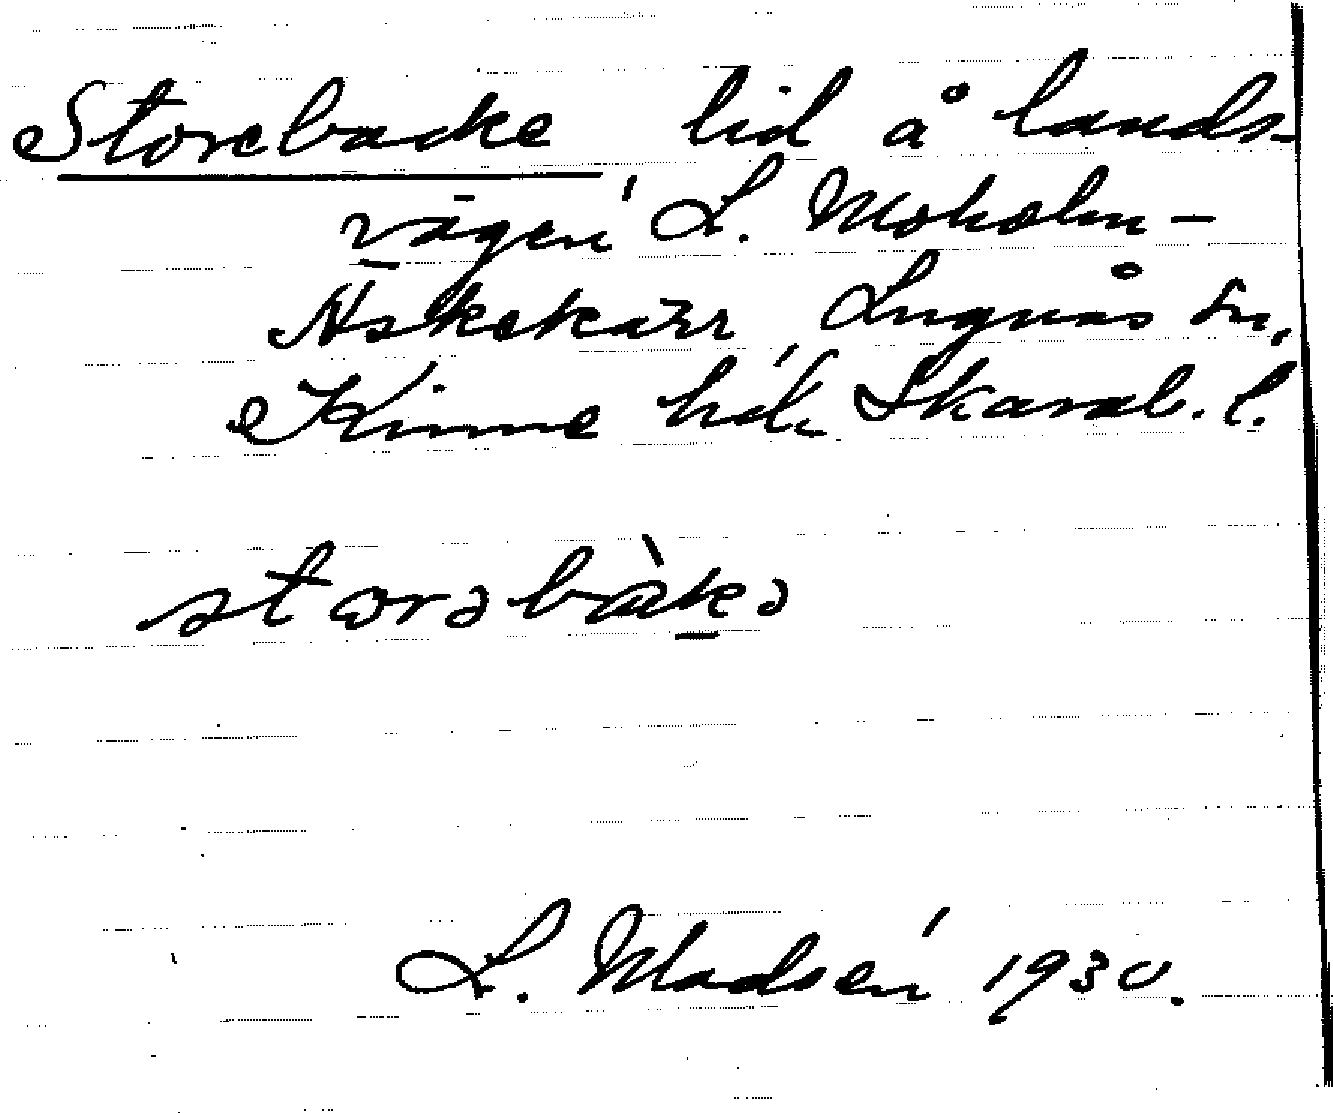 Storebacke lid å lands-
vägen L. Moholm -
Äskekärr, Lugnås sn,
Kinne hd, Skarab. l.
storəbàkə
L. Madsén 1930.